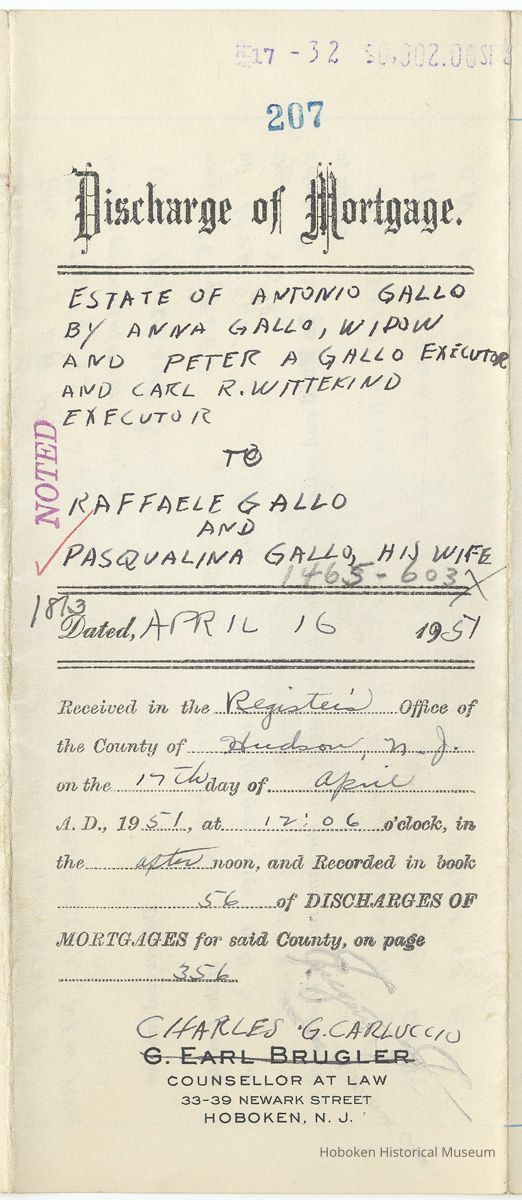 17 - 32
207
Discharge of Mortgage.
ESTATE OF ANTONIO GALLO
BY ANNA GALLO, WIDOW
AND PETER A GALLO EXECUTOR
AND CARL R. WITTEKIND
EXECUTOR
TO
NOTED
RAFFAELE GALLO
AND
PASQUALINA GALLO, HIS WIFE
1465-603 X
1813
Dated, APRIL 16 1951
Received in the Register's Office of
the County of Hudson, N.J.
on the 17th day of April
A. D., 1951, at 12:06 o'clock, in
the after noon, and Recorded in book
56 of DISCHARGES OF
MORTGAGES for said County, on page
356
CHARLES G. CARLUCCIO
G. EARL BRUGLER
COUNSELLOR AT LAW
33-39 NEWARK STREET
HOBOKEN, N. J.
Hoboken Historical Museum